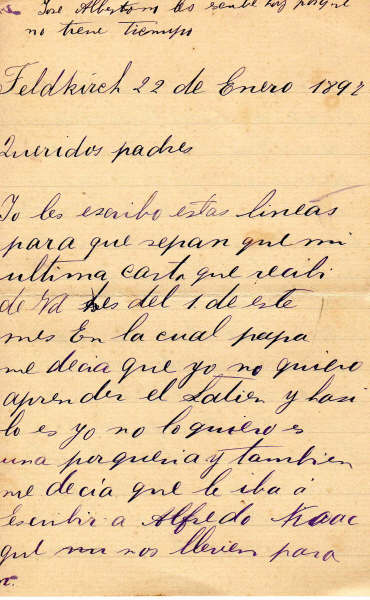 José Alberto no les escribe hoy porque
no tiene tiempo
Feldkirch 22 de Enero 1892
Queridos padres
Yo les escribo estas lineas
para que sepan que mi
ultima carta que recibi
de Vd es del 1. de este
mes En la cual papa
me decia que yo no quiero
aprender el Latien y hasi
lo es yo no lo quiero es
una porqueria y tambien
me decía que le iba á
Escribir a Alfredo
que nos lleven para